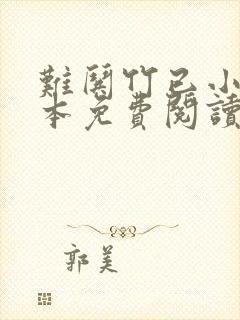 難鬨竹已小
本免費閱讀
郭美